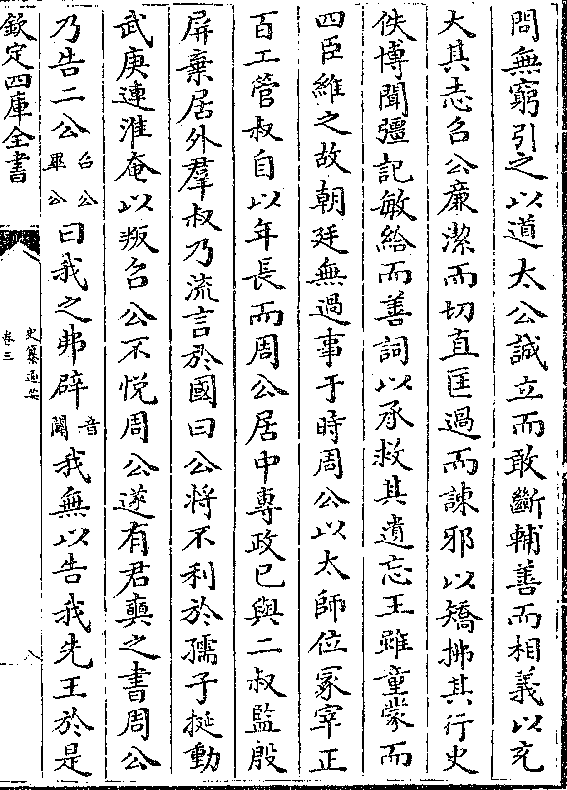 問無窮引之以道太公誠立而敢斷輔善而相義以充
大其志召公㢘潔而切直匡過而諌邪以矯拂其行史
佚博聞彊記敏給而善詞以承救其遺忘王雖童蒙而
四臣維之故朝廷無過事于時周公以太師位冢宰正
百工管叔自以年長而周公居中專政已與二叔監殷
屏棄居外羣叔乃流言於國曰公將不利於孺子挻動
武庚連淮奄以叛召公不悦周公遂有君奭之書周公
乃告二公召公畢公曰我之弗辟音闢我無以告我先王於是
欽定四庫全書
史纂通要
卷三
八